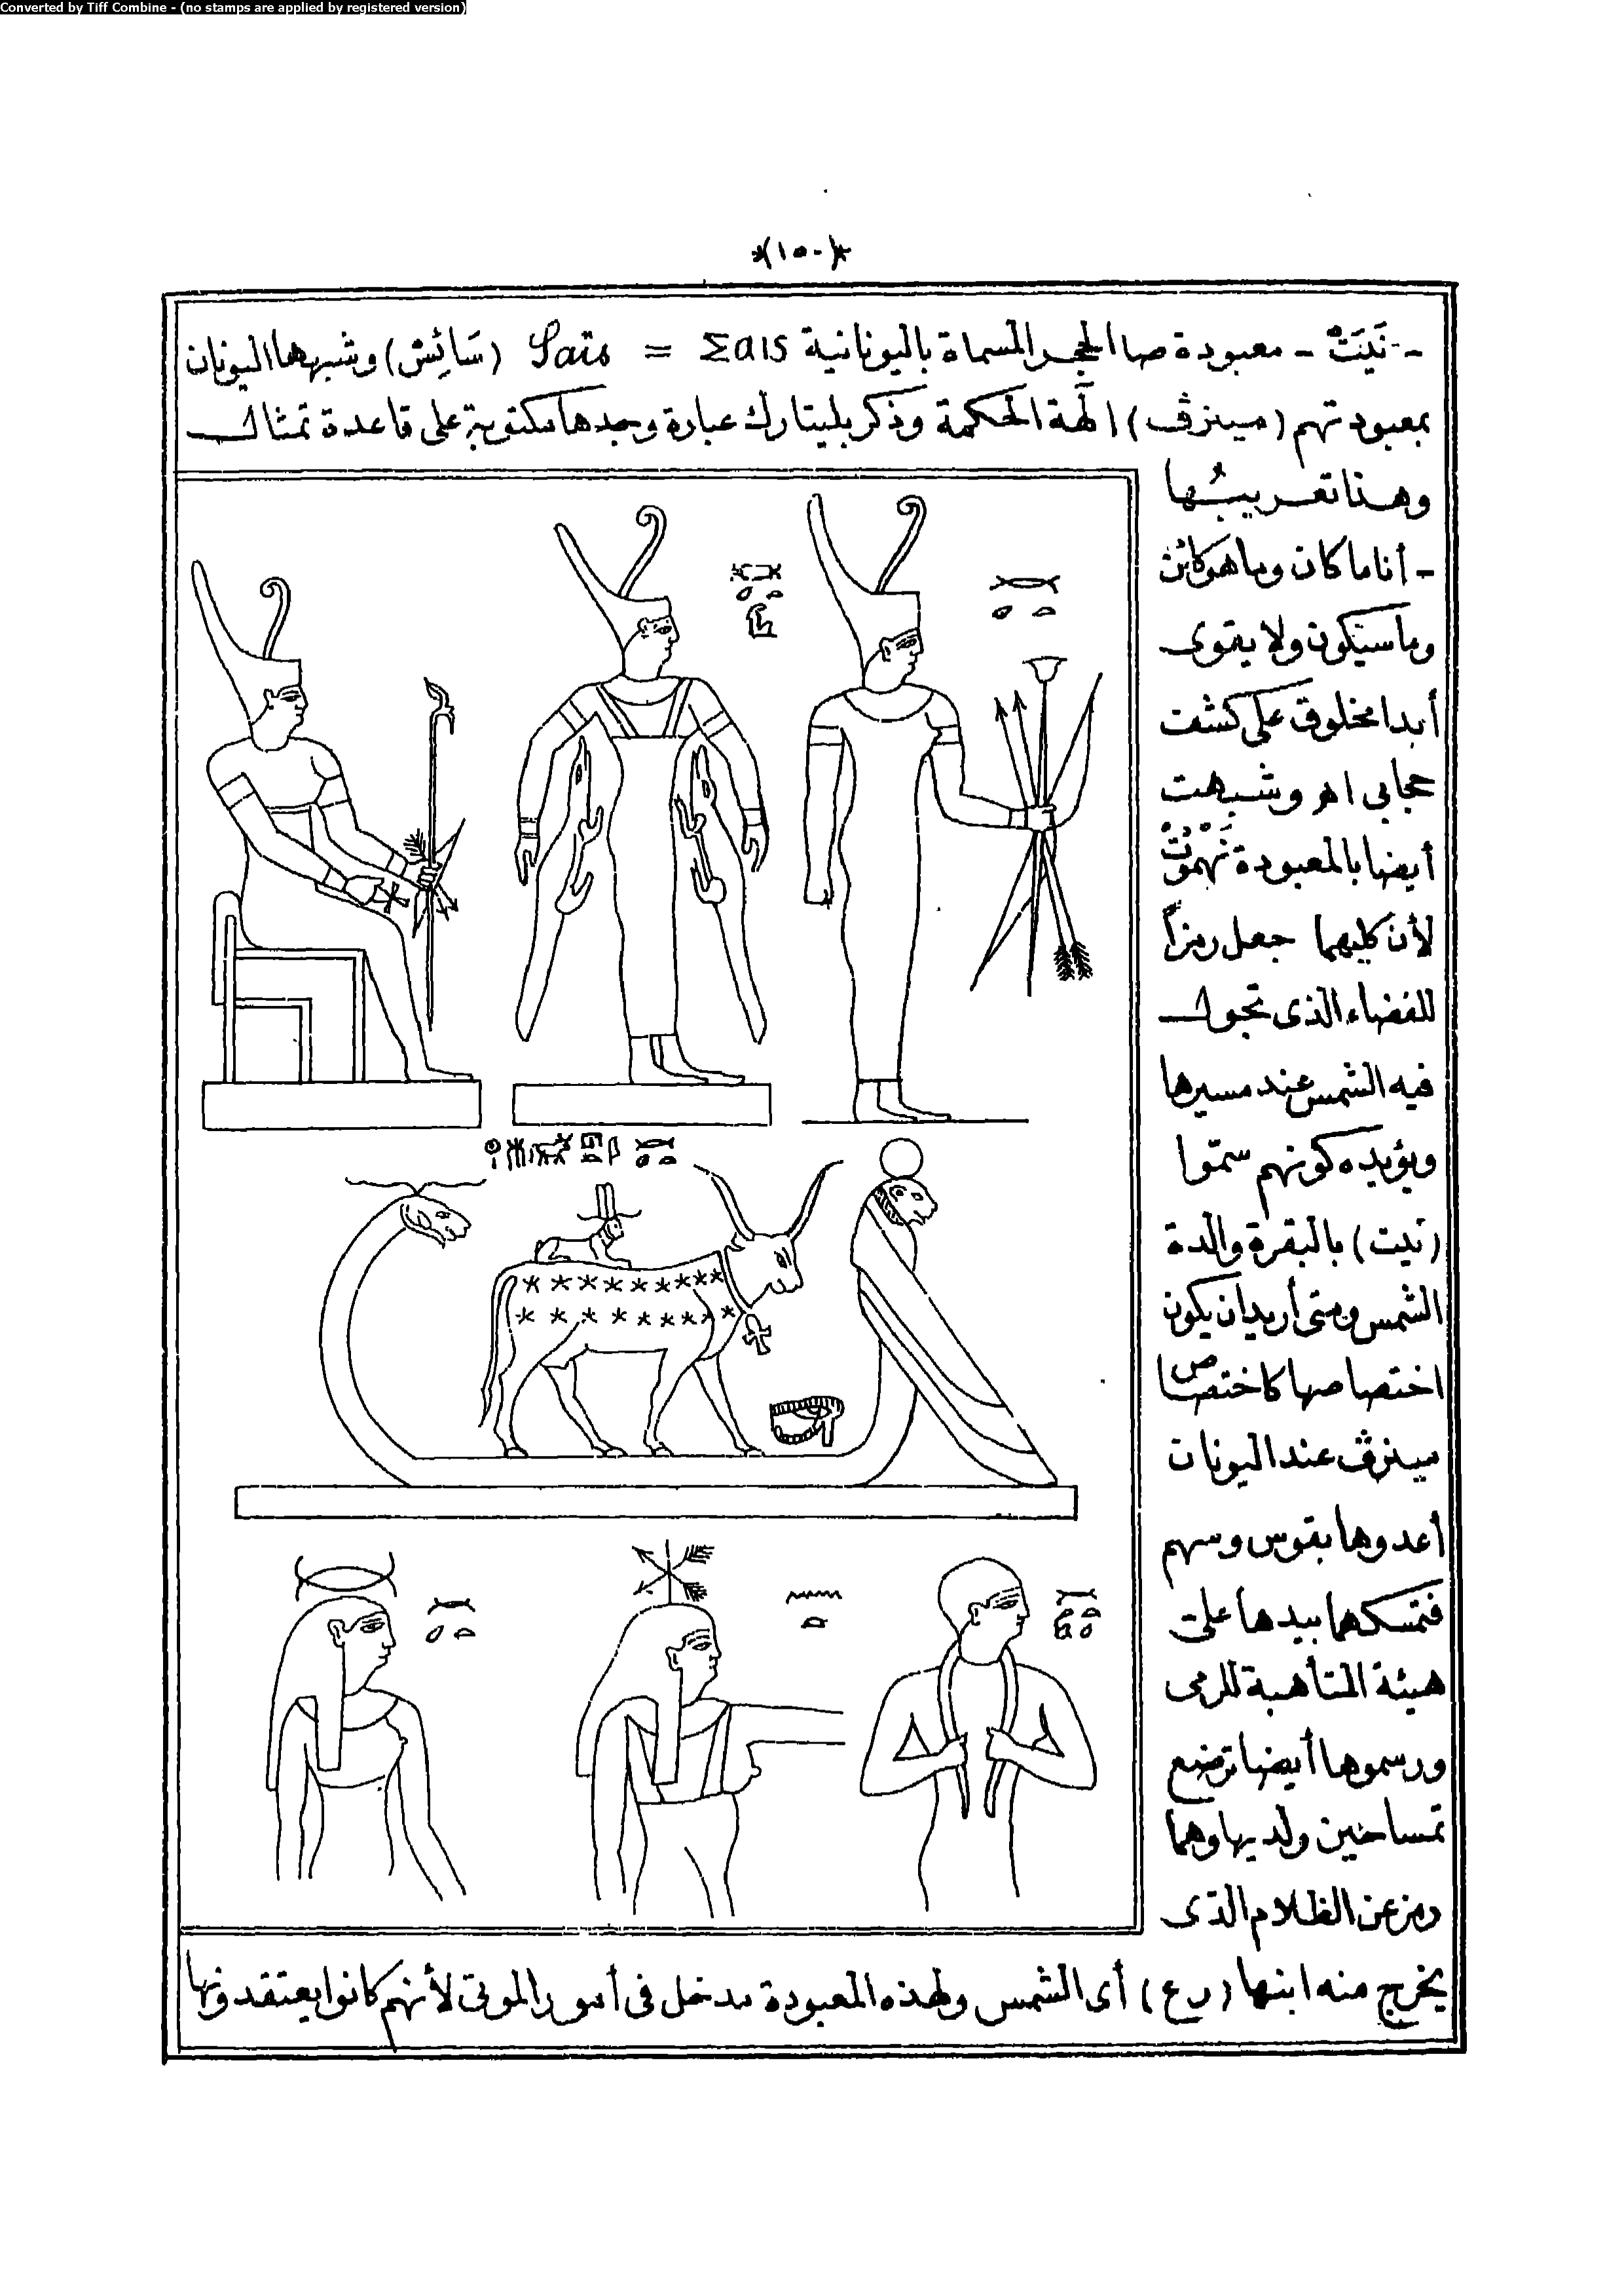 Converted by Tiff Combine - (no stamps are applied by registered version)
*(١٥٠)*
- نَيَتْ - معبودة صا الحجر المسماة باليونانية Σαις = Saïs (سَائِسْ) وشبهها اليونان
بمعبودتهم (مينرڤ) الٓهة الحكمة وذكر بليتارك عبارة وجدها مكتوبة على قاعدة تمثال
وهذا تعريبُها
- أنا ما كان وما هو كائن
وما سيكون ولا يقوى
أبدا مخلوق على كشف
حجابى اهر وشبهت
أيضا بالمعبودة
لأن كليهما جعل رمزاً
للفضاء الذى تجول
فيه الشمس عند مسيرها
ويؤيده كونهم سمّوا
(نيت) بالبقرة والدة
الشمس ومتى أريد ان يكون
اختصاصها كاختصاص
مينرڤ عند اليونان
أعدوها بقوس وسهم
فتمسكهما بيدها على
هيئة المتأهبة للرمى
ورسموها أيضا ترضع
تمساحين ولديها وهما
رمز عن الظلام الذى
يخرج منه ابنها (رع) أى الشمس ولهذه المعبودة مدخل فى أمور الموتى لأنهم كانوا يعتقدونها